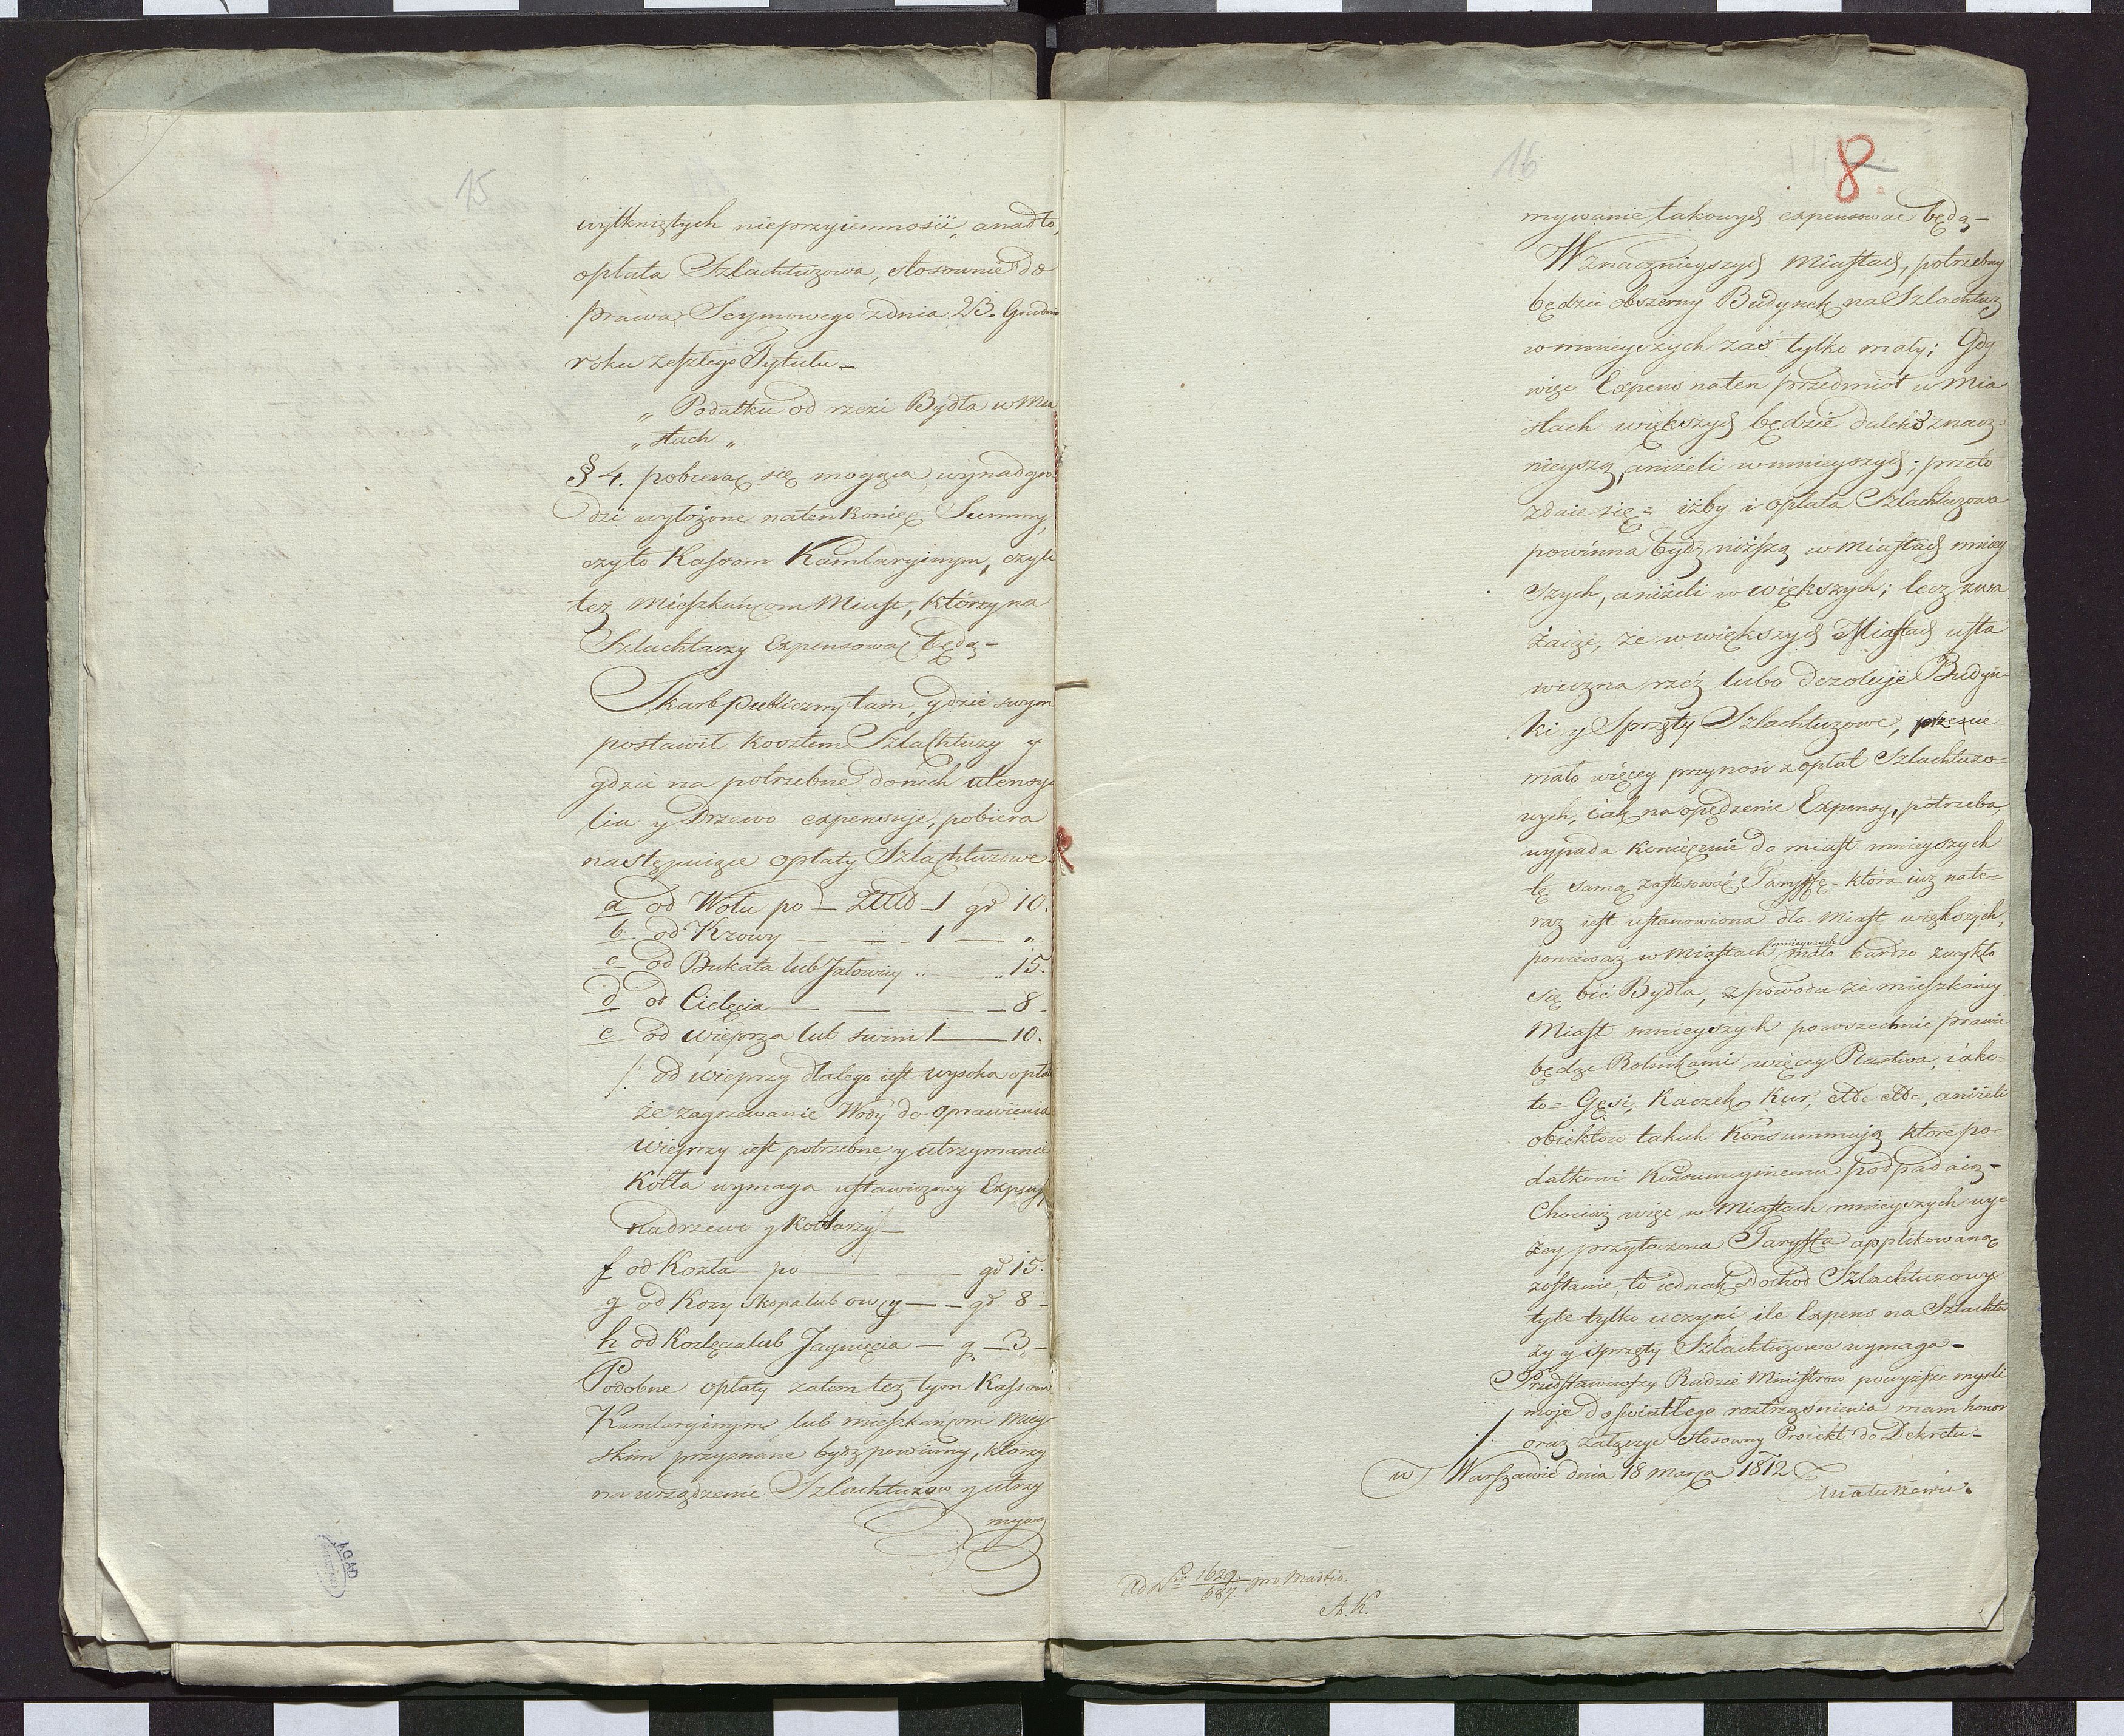 15
wytkniętych nieprzyiemności, a nadto,
opłata Szlachtuzowa, stosownie do
prawa Seymowego z dnia 23. Grudnia
roku zeszłego Tytułu –
„ Podatku od rzezi Bydła w Mia
„ stach „
§ 4. pobierać się mogąca, wynadgro
dzi wyłożone na ten koniec Summy,
czyto Kassom Kamlaryinym, czyli
też Mieszkańcom Miast, którzy na
Szlachtuzy Expensować będą –
Skarb publiczny tam, gdzie swym
postawił kosztem Szlachtuzy y
gdzie na potrzebne do nich utensy
lia y Drzewo expensuje, pobiera
następuiące opłaty Szlachtuzowe
a od Wołu po – 1 gr 10.
b od Krowy — 1 — „
c od Bukata lub Jałowicy „ — 15.
d od Cielęcia — 8 –
e od wieprza lub swini 1 — 10.
/: od wieprzy dlatego iest wysoka opłata
że zagrzewanie Wody do oprawienia
Wieprzy iest potrzebne, y utrzymanie
Kotła wymaga ustawiczney Expensy
na drzewo y Kotlarzy –
f od Kozła – po — gr 15.
g od Kozy Skopa lub owcy — gr. 8 –
h od Koźlęcia lub Jagnięcia — g – 3. –
Podobne opłaty zatem też tym Kassom
Kamlaryinym lub mieszkańcom Miey
skim przyznane bydź powinny, którzy
na urządzenie Szlachtuzow y utrzy
mywa
AGAD
16
8.
mywanie takowych expensować będą –
W znacznieyszych Miastach, potrzebny
będzie obszerny Budynek na Szlachtuz
w mnieyszych zaś tylko mały; Gdy
więc Expens na ten przedmiot w Mia
stach większych będzie daleko znacz-
nieyszą, aniżeli w mnieyszych; przeto
zdaie się = iżby i opłata Szlachtuzowa
powinna bydź niższą w Miastach mniey
szych, aniżeli w większych; lecz zwa
żaiąc, że w większych Miastach usta
wiczna rzeź lubo dezoluje Budyn-
ki y Sprzęty Szlachtuzowe, przecie
mało więcey przynosi z opłat Szlachtuzo=
wych, iak na opędzenie Expensy, potrzeba,
wypada koniecznie do miast mnieyszych
tę samą zastosować Taryffę – która iuż nate=
raz iest ustanowiona dla Miast większych,
ponieważ w Miastach mnieyszych mało bardzo zwykło
się bić Bydła, z powodu że mieszkańcy
Miast mnieyszych powszechnie prawie
będąc Rolnikami więcey Ptastwa, iako=
to = Gęsi, Kaczek, Kur, etc. etc., aniżeli
obiektow takich Konsummuią które po=
datkowi Konsumcyinemu podpadaią –
Chociaż więc w Miastach mnieyszych wy=
żey przytoczona Taryffa applikowaną
zostanie, to iednak Dochod Szlachtuzowy
tyle tylko uczyni, ile Expens na Szlachtu
zy y sprzęty Szlachtuzowe wymaga –
Przedstawiwszy Radzie Ministrow powyższe mysli
moje do światłego roztrząsnienia mam honor
/. oraz załączyć stosowny Proiekt do Dekretu –
w Warszawie dnia 18 Marca 1812
Matuszewic.
Ad Nro 1629/687.
A. K.